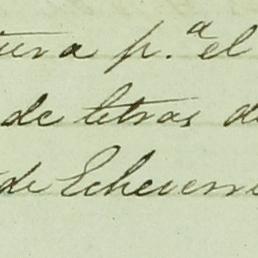 tura p.ª el
de letras de
de Echeverri